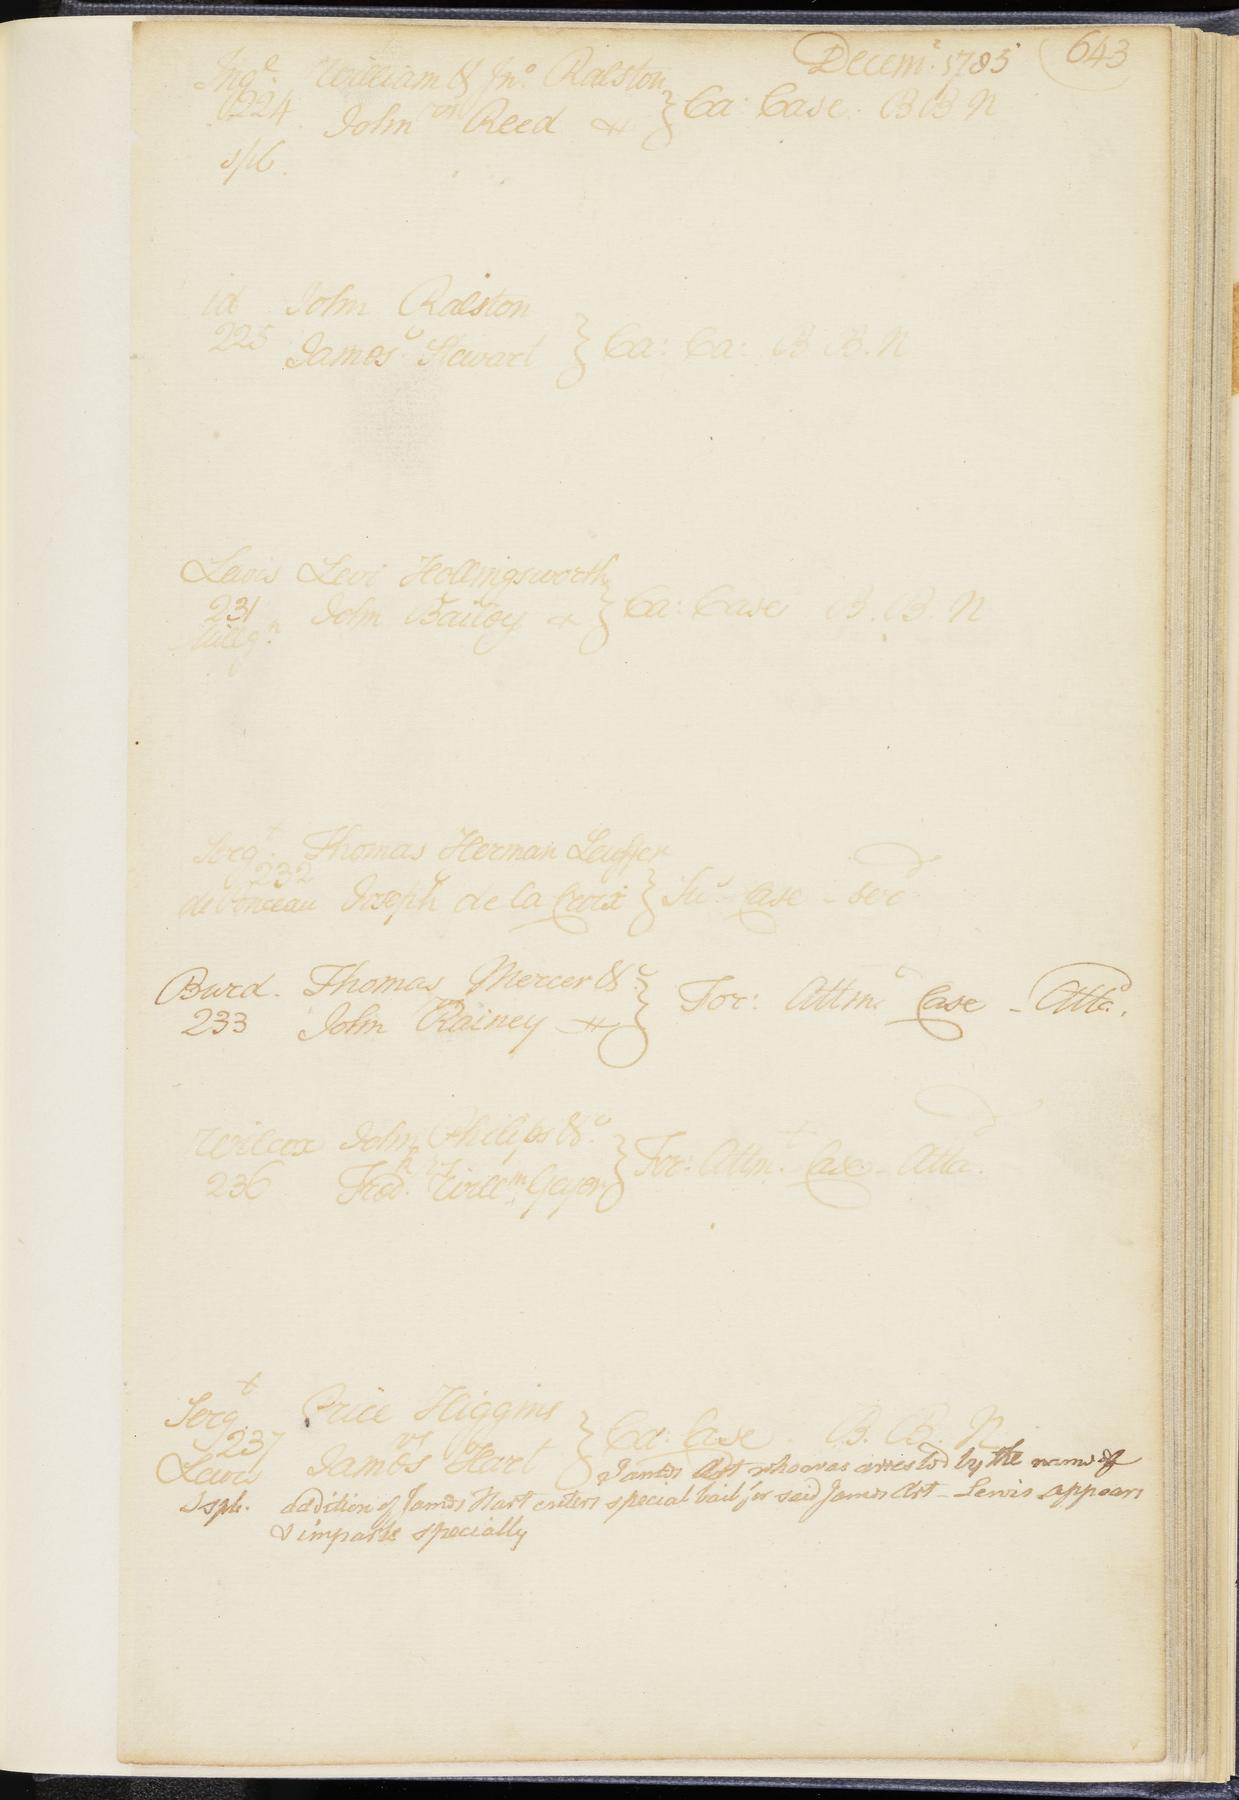 Decemr. 1785 643
Inge. William & Jno. Ralston
224 vs } Ca: Case. B B N
John Reed
spl.
id John Ralston
225 v } Ca: Ca: B. B. N
James Stewart
Lewis Levi Hollingsworth
231 v } Ca: Case B. B. N
John Bailey
Sergt. Thomas Herman Leuffer
232 v } Su: Case - serd
du Ponceau Joseph de la Croix
Burd. Thomas Mercer & Co
233 vs } For: Attmt. Case - Attd.
John Rainey
Wilcox John Philips & Co.
236 vs } For: Attmt. Case - Attd.
Fredk. Willm. Geyer
Sergt Price Higgins
237 vs } Ca: Case. B. B. N
Lewis James Hart James Art who was arrested by the name &
spl. addition of James Hart enters special bail for said James Art - Lewis appears
& imparls specially